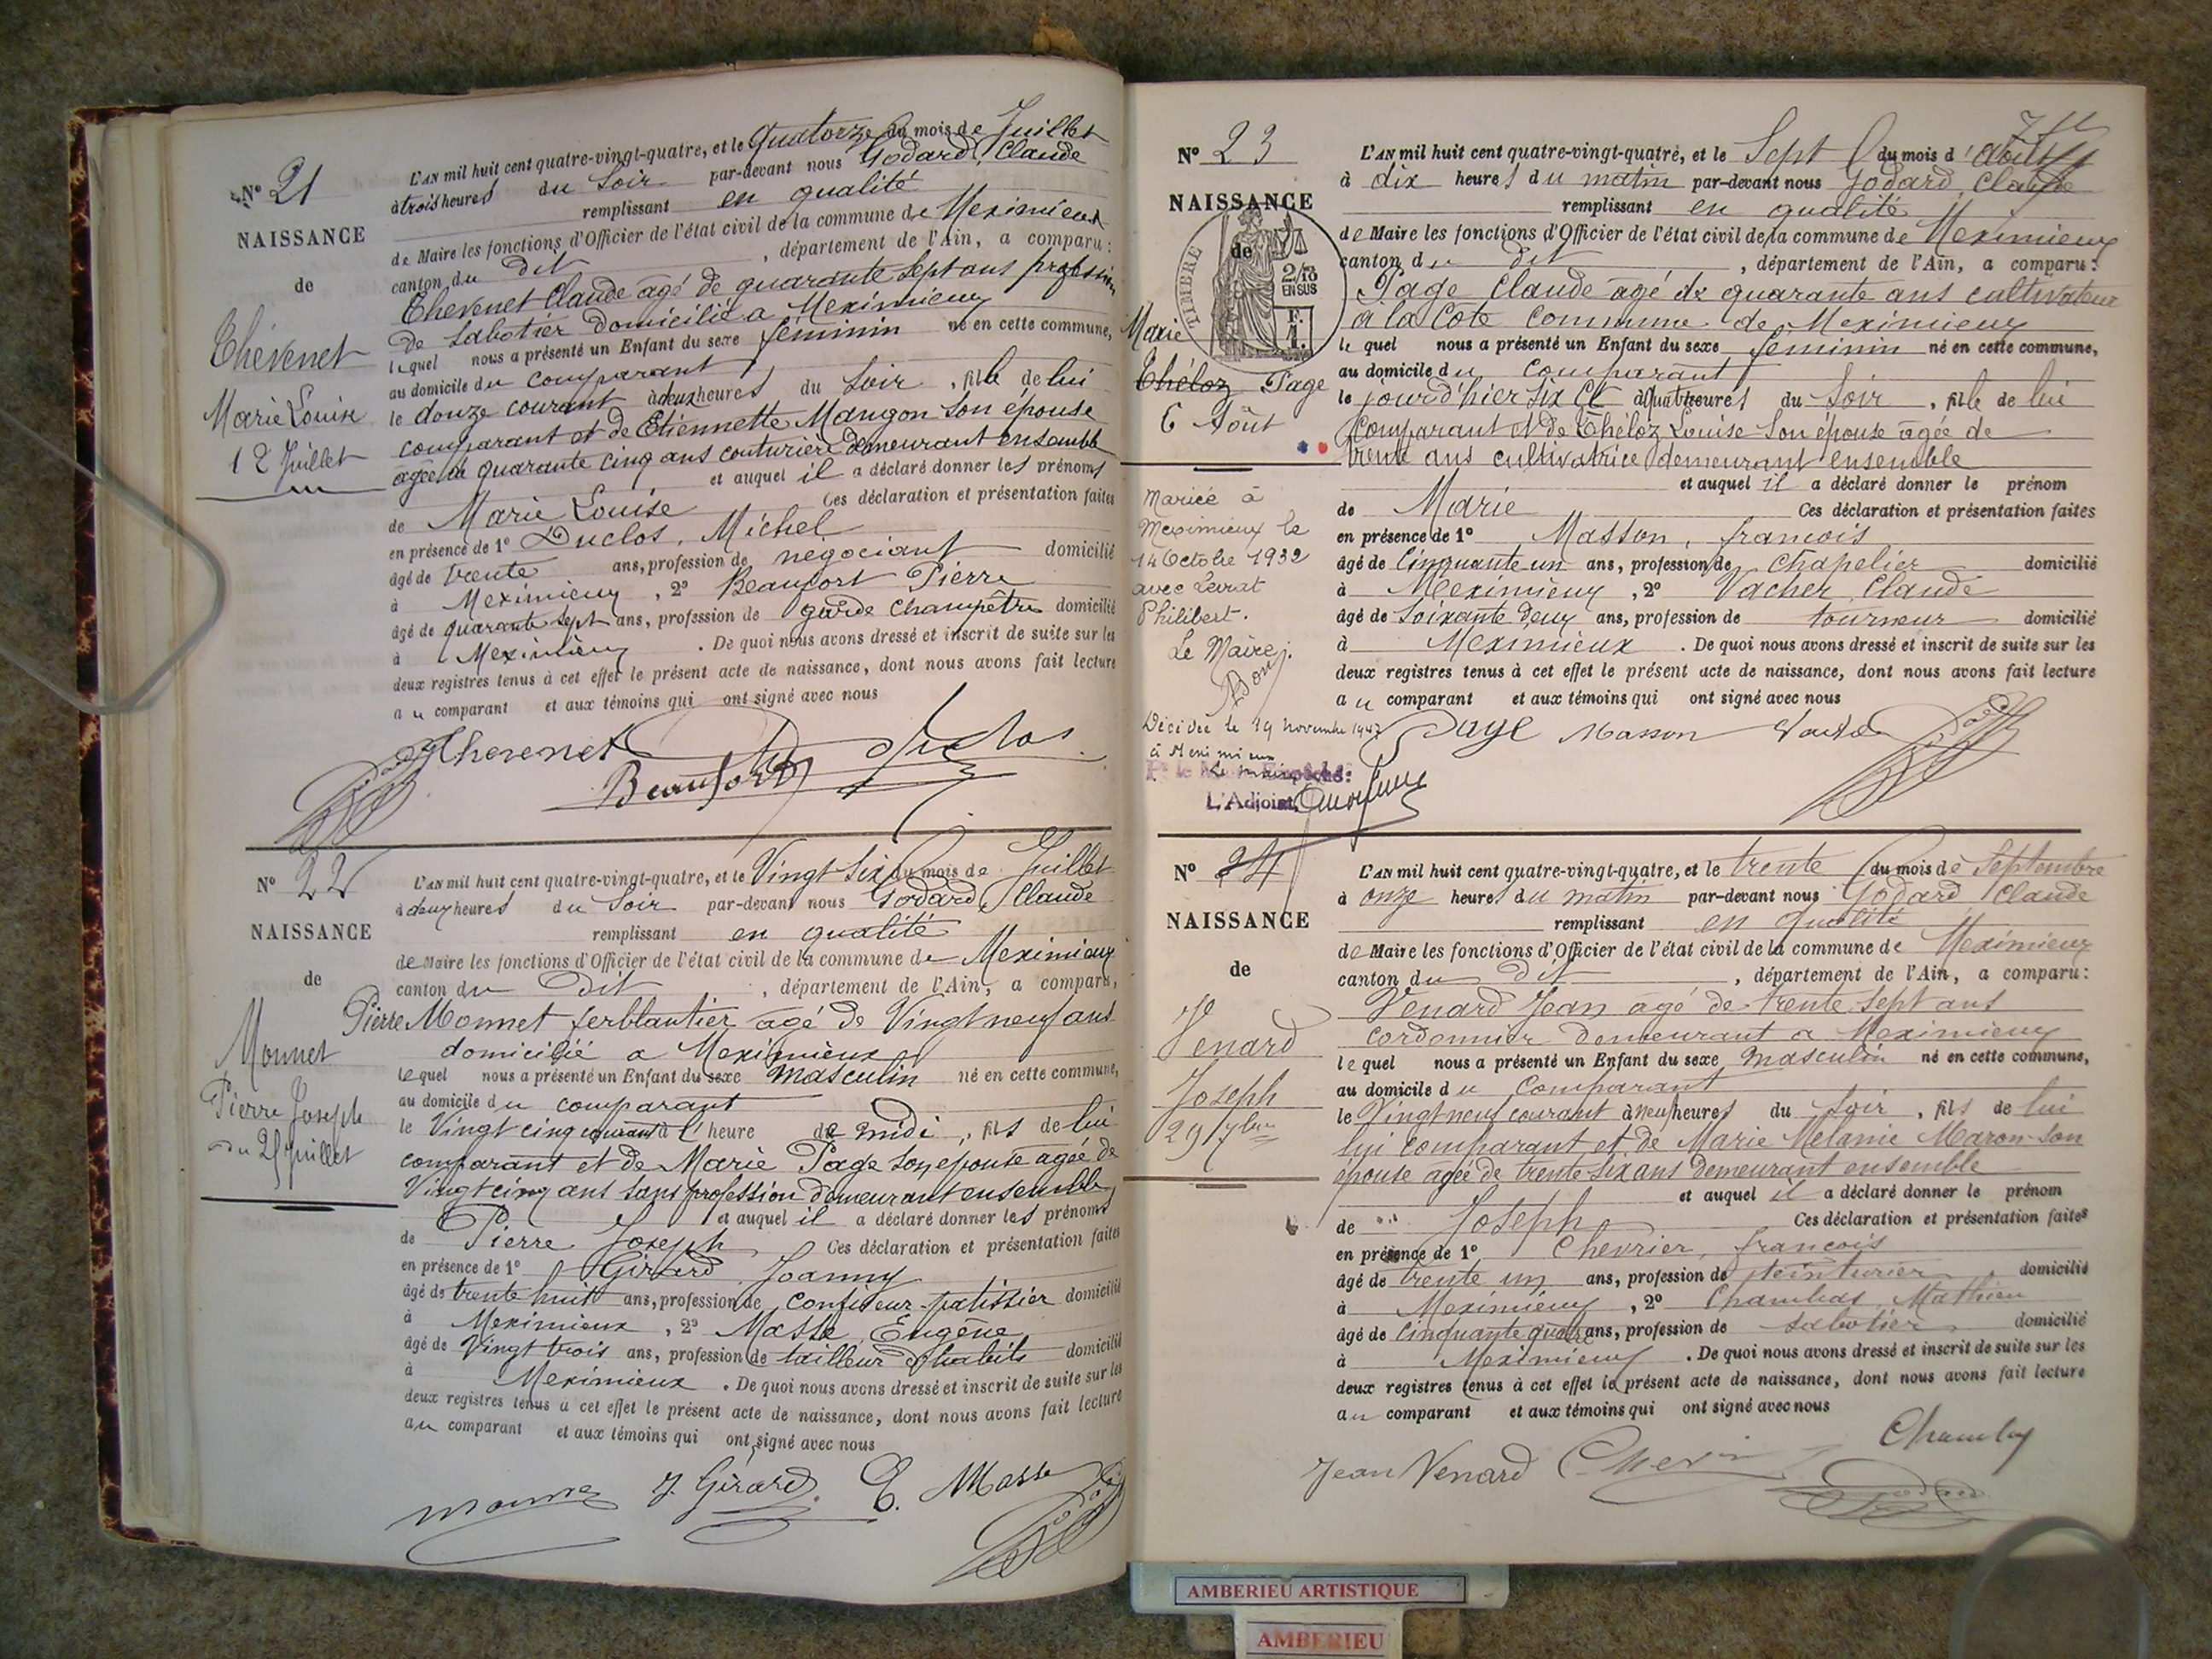 N° 21
NAISSANCE
de
Thévenet
Marie Louise
12 Juillet
L'AN mil huit cent quatre-vingt-quatre, et le quatorze du mois de Juillet
à trois heures du soir par-devant nous Godard, Claude
remplissant en qualité
de Maire les fonctions d'Officier de l'état civil de la commune de Meximieux
canton du dit , département de l'Ain, a comparu :
Thevenet Claude agé de quarante sept ans profession
de sabotier domicilié a Meximieux
lequel nous a présenté un Enfant du sexe féminin né en cette commune,
au domicile du comparant
le douze courant à deux heures du soir , fille de lui
comparant et de Etiennette Mangon son épouse
agée de quarante cinq ans couturière demeurant ensemble
et auquel il a déclaré donner les prénoms
de Marie Louise Ces déclaration et présentation faites
en présence de 1° Duclos, Michel
âgé de trente ans, profession de négociant domicilié
à Meximieux , 2° Beaufort Pierre
âgé de quarante sept ans, profession de garde champêtre domicilié
à Meximieux . De quoi nous avons dressé et inscrit de suite sur les
deux registres tenus à cet effet le présent acte de naissance, dont nous avons fait lecture
au comparant et aux témoins qui ont signé avec nous
Thevenet Duclos
Beaufort
N° 22
NAISSANCE
de
Monnet
Pierre Joseph
du 25 Juillet
L'AN mil huit cent quatre-vingt-quatre, et le Vingt six du mois de Juillet
à deux heures du soir par-devant nous Godard, Claude
remplissant en qualité
de Maire les fonctions d'Officier de l'état civil de la commune de Meximieux
canton du dit , département de l'Ain, a comparu,
Pierre Monnet ferblantier agé de Vingt neuf ans
domicilié a Meximieux
lequel nous a présenté un Enfant du sexe masculin né en cette commune,
au domicile du comparant
le Vingt cinq courant à l'heure de midi , fils de lui
comparant et de Marie Page son epouse agée de
Vingt cinq ans sans profession demeurant ensemble
et auquel il a déclaré donner les prénoms
de Pierre Joseph Ces déclaration et présentation faites
en présence de 1° Girard Joanny
âgé de trente huit ans, profession de confiseur-patissier domicilié
à Meximieux , 2° Masse, Eugène
âgé de Vingt trois ans, profession de tailleur d'habits domicilié
à Meximieux . De quoi nous avons dressé et inscrit de suite sur les
deux registres tenus à cet effet le présent acte de naissance, dont nous avons fait lecture
au comparant et aux témoins qui ont signé avec nous
J. Girard E. Masse
N° 23
NAISSANCE
de
TIMBRE
2/10
EN SUS
F.
1.
Marie
Théloz Page
6 Août
Mariée à
Meximieux le
14 Octobre 1932
avec Levrat
Philibert.
Le Maire.
Décédée le 19 novembre 1947
à Meximieux
Le maire
L'Adjoint
L'AN mil huit cent quatre-vingt-quatre, et le Sept du mois d'Août
à dix heures du matin par-devant nous Godard, Claude
remplissant en qualité
de Maire les fonctions d'Officier de l'état civil de la commune de Meximieux
canton du dit , département de l'Ain, a comparu :
Page Claude agé de quarante ans cultivateur
a la Cote commune de Meximieux
lequel nous a présenté un Enfant du sexe féminin né en cette commune,
au domicile du comparant
le jourd'hier six Ct à quatre heures du soir , fille de lui
comparant et de Théloz Louise son épouse agée de
trente ans cultivatrice demeurant ensemble
et auquel il a déclaré donner le prénom
de Marie Ces déclaration et présentation faites
en présence de 1° Masson, francois
âgé de cinquante un ans, profession de chapelier domicilié
à Meximieux , 2° Vacher Claude
âgé de soixante deux ans, profession de tourneur domicilié
à Meximieux . De quoi nous avons dressé et inscrit de suite sur les
deux registres tenus à cet effet le présent acte de naissance, dont nous avons fait lecture
au comparant et aux témoins qui ont signé avec nous
Page Masson
N° 24
NAISSANCE
de
Venard
Joseph
29 7bre
L'AN mil huit cent quatre-vingt-quatre, et le trente du mois de Septembre
à onze heures du matin par-devant nous Godard Claude
remplissant en qualité
de Maire les fonctions d'Officier de l'état civil de la commune de Meximieux
canton du dit , département de l'Ain, a comparu :
Venard Jean agé de trente sept ans
cordonnier demeurant a Meximieux
lequel nous a présenté un Enfant du sexe masculin né en cette commune,
au domicile du comparant
le Vingt neuf courant à neuf heures du soir , fils de lui
lui comparant et de Marie Melanie Maron son
épouse agée de trente six ans demeurant ensemble
et auquel il a déclaré donner le prénom
de Joseph Ces déclaration et présentation faites
en présence de 1° Chevrier, francois
âgé de trente un ans, profession de teinturier domicilié
à Meximieux , 2° Chambas, Mathieu
âgé de cinquante quatre ans, profession de sabotier domicilié
à Meximieux . De quoi nous avons dressé et inscrit de suite sur les
deux registres tenus à cet effet le présent acte de naissance, dont nous avons fait lecture
au comparant et aux témoins qui ont signé avec nous
Jean Venard
AMBERIEU ARTISTIQUE
AMBERIEU